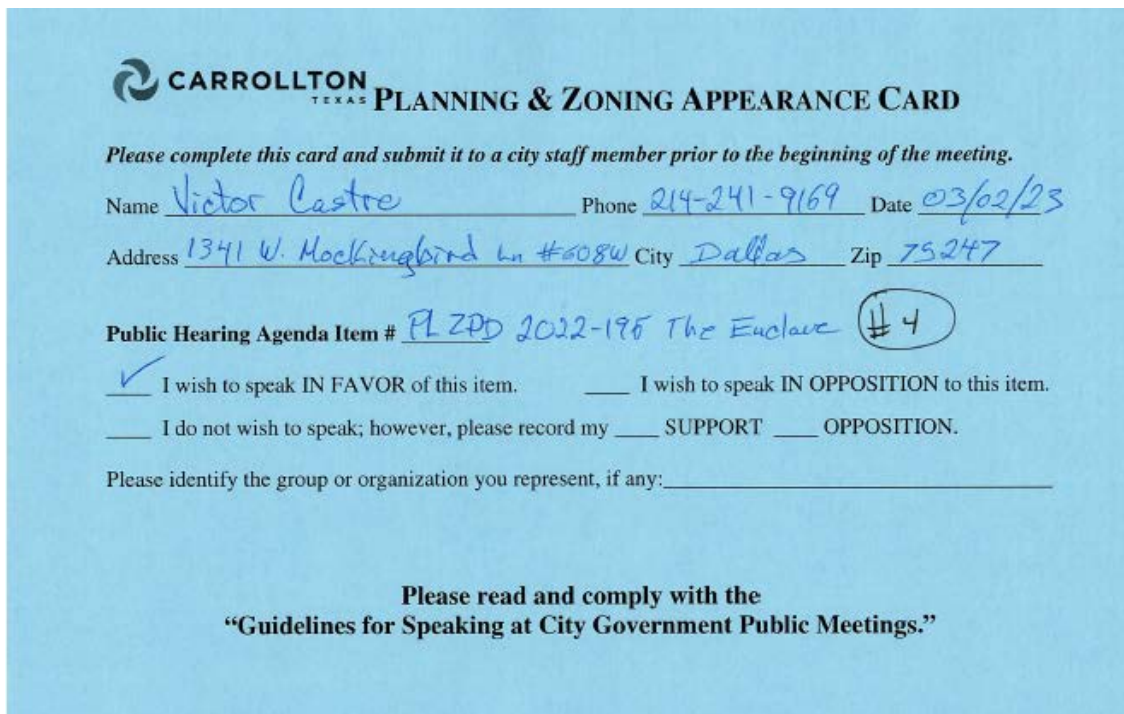 CARROLLTON
TEXAS
PLANNING & ZONING APPEARANCE CARD
Please complete this card and submit it to a city staff member prior to the beginning of the meeting.
Name Victor Castro Phone 214-241-9169 Date 03/02/23
Address 1341 W. Mockingbird Ln #608W City Dallas Zip 75247
Public Hearing Agenda Item # PLZPD 2022-195 The Enclave #4
✓ I wish to speak IN FAVOR of this item. ____ I wish to speak IN OPPOSITION to this item.
____ I do not wish to speak; however, please record my ____ SUPPORT ____ OPPOSITION.
Please identify the group or organization you represent, if any:____
Please read and comply with the
“Guidelines for Speaking at City Government Public Meetings.”